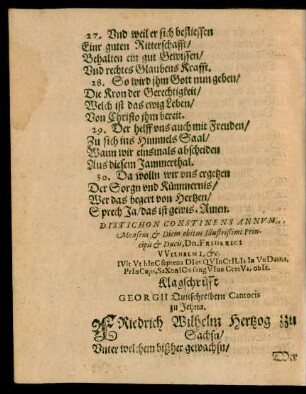 27. Vnd weil er sich beflissen
Einr guten Ritterschafft/
Behalten ein gut Gewissen/
Vnd rechtes Glaubens Krafft.
28. So wird ihm Gott nun geben/
Die Kron der Gerechtigkeit/
Welch ist das ewig Leben/
Von Christo ihm bereit.
29. Der helff vns auch mit Freuden/
Zu sich ins Himmels Saal/
Wann wir einsmals abscheiden
Aus diesem Jammerthal.
30. Da wolln wir vns ergetzen
Der Sorgn vnd Kümmernis/
Wer das begert von Hertzen/
Sprech Ja/ das ist gewis. Amen.
DISTICHON CONSTINENS ANNVM,
Mensem & Diem obitus Illustrissimi Prin-
cipis & Ducis, Dn. FRIDERICI
VVILHELMI, &c.
Klagschrifft
GEORGII Quitschreibern Cantoris
zu Jehna.
FRiedrich Wilhelm Hertzog zu
Sachsn/
Vnter welchem bißher gewachsn/
Der